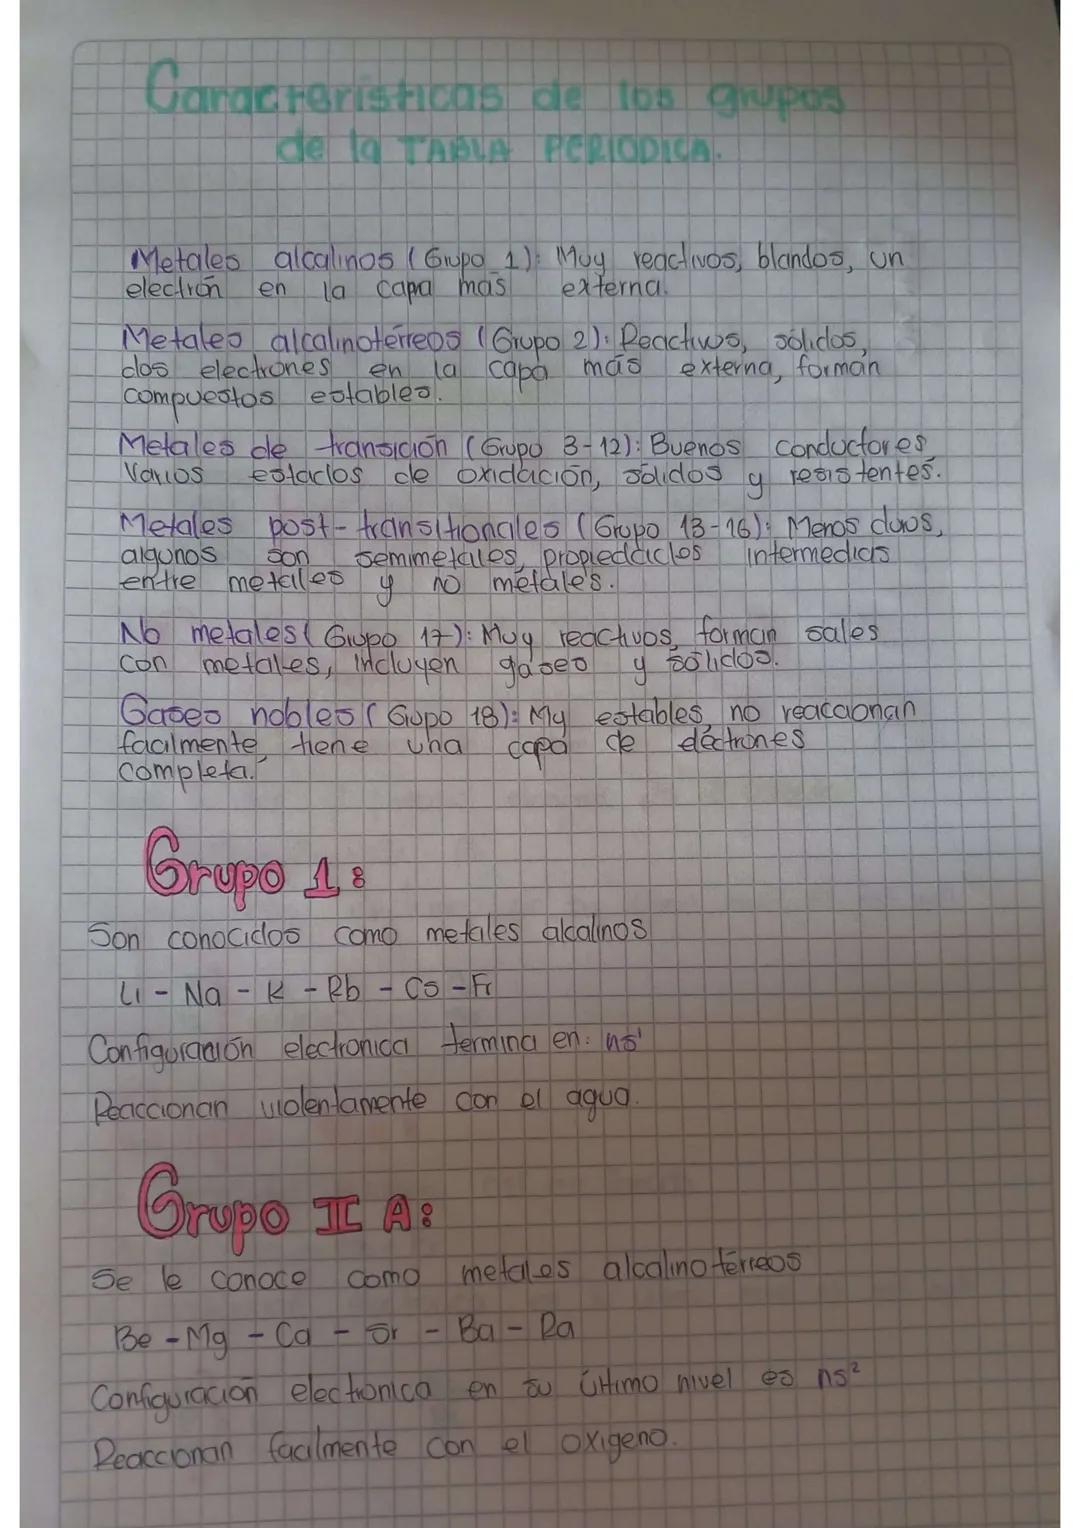 Características de los grupos
de la TABLA PERIODICA.
Metales alcalinos (Grupo 1): Muy reactivos, blandos, un
electrón en la capa más externa.
Metales alcalinotérreos (Grupo 2): Reactivos, sólidos,
dos electrones en la capa más externa, forman
compuestos estables.
Metales de transición (Grupo 3-12): Buenos conductores,
Varios estados de oxidación, sólidos y resistentes.
Metales post-transitionales (Grupo 13-16): Menos duros,
algunos son semimetales, propiedades intermedias
entre metales y no metales.
No metales (Grupo 17): Muy reactivos, forman sales
con metales, incluyen gases y sólidos.
Gases nobles (Grupo 18): My estables, no reaccionan
facilmente, tiene una capa de electrones
completa.
Grupo 1:
Son conocidos como metales alcalinos
Li - Na - K - Rb - Cs - Fr
Configuración electronica termina en: ns¹
Reaccionan violentamente con el agua.
Grupo II A:
Se le conoce como metales alcalinotérreos
Be - Mg - Ca - Sr - Ba - Ra
Configuración electronica en su último nivel es ns²
Reaccionan facilmente con el oxigeno.